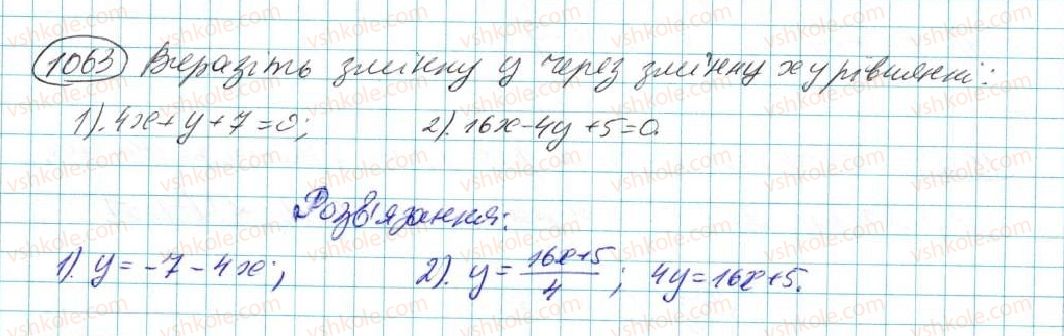 1063 Виразіть змінну y через змінну x у рівнянні:
1). 4x+y+7=0; 2). 16x-4y+5=0.
Розв'язання:
1). y=-7-4x; 2). y=\frac{16x+5}{4}; 4y=16x+5.